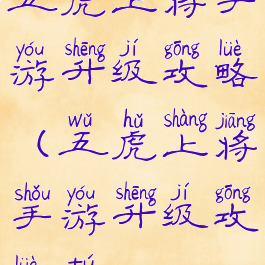 五虎上将手
yóu shēng jí gōng lüè
游升级攻略
wǔ hǔ shàng jiāng
（五虎上将
shǒu yóu shēng jí gōng
手游升级攻
lüè